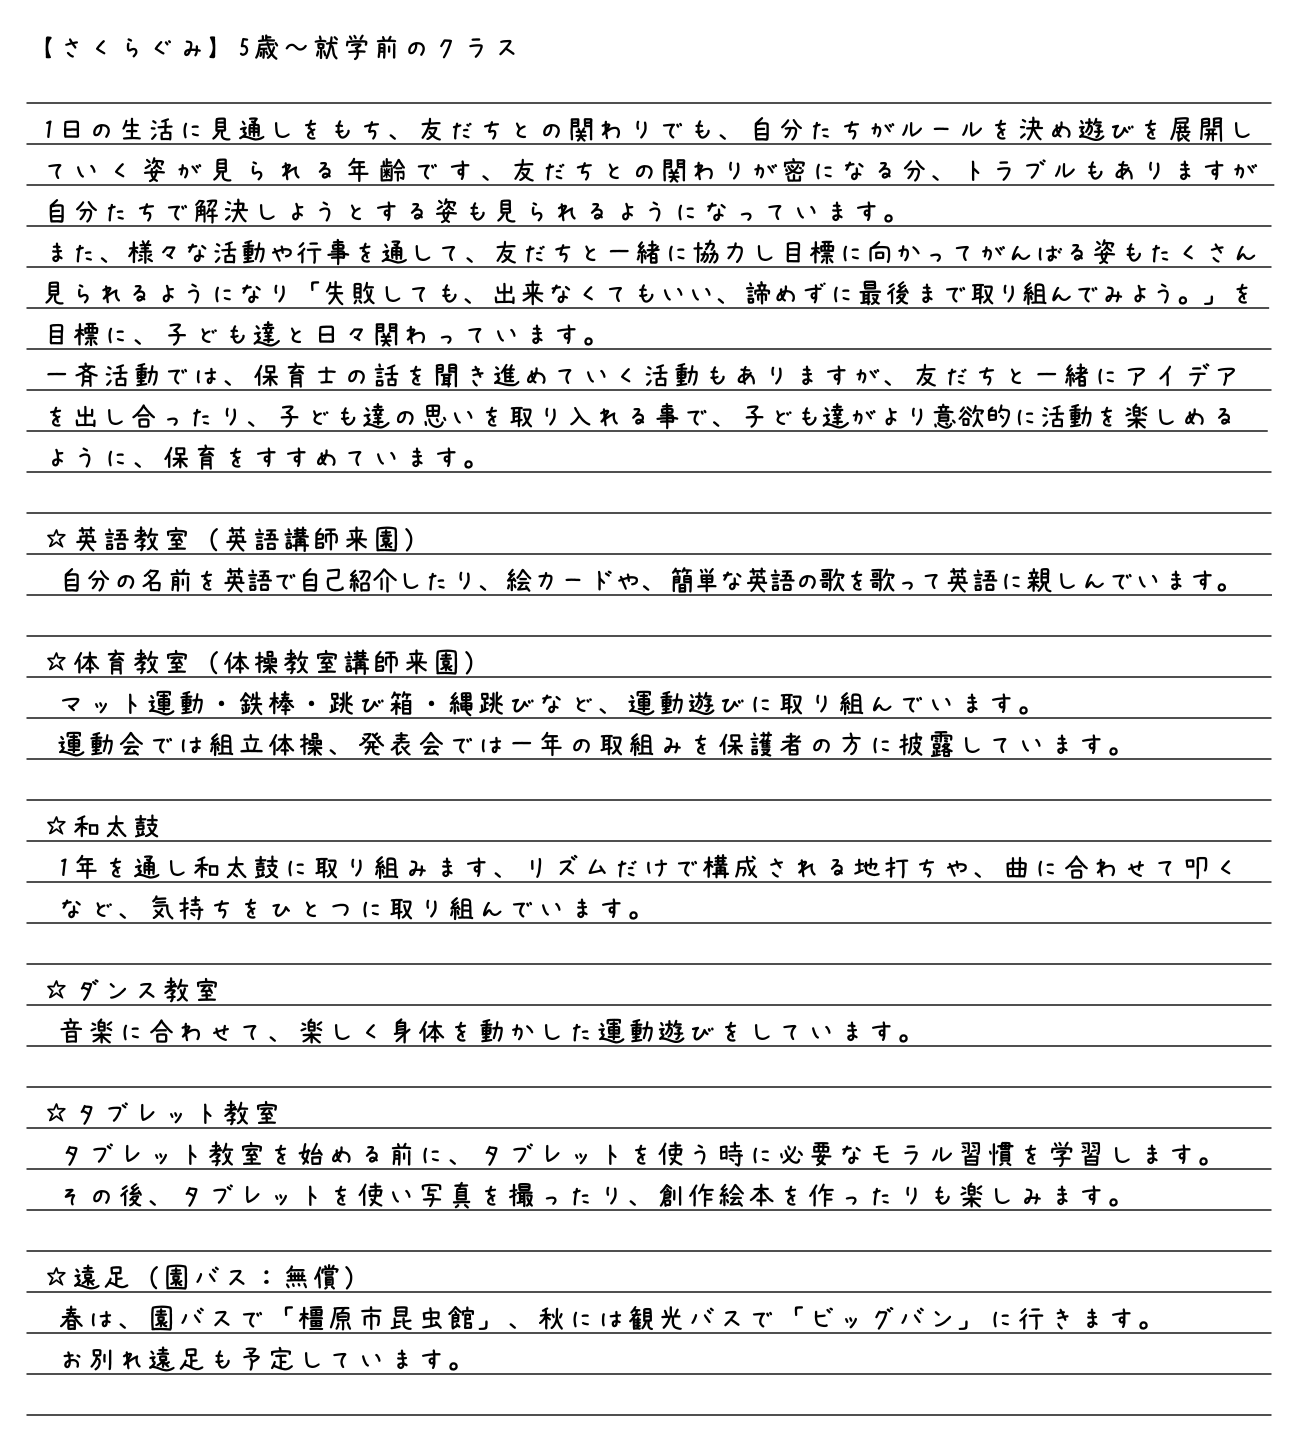 【さくらぐみ】5歳～就学前のクラス
1日の生活に見通しをもち、友だちとの関わりでも、自分たちがルールを決め遊びを展開し
ていく姿が見られる年齢です、友だちとの関わりが密になる分、トラブルもありますが
自分たちで解決しようとする姿も見られるようになっています。
また、様々な活動や行事を通して、友だちと一緒に協力し目標に向かってがんばる姿もたくさん
見られるようになり「失敗しても、出来なくてもいい、諦めずに最後まで取り組んでみよう。」を
目標に、子ども達と日々関わっています。
一斉活動では、保育士の話を聞き進めていく活動もありますが、友だちと一緒にアイデア
を出し合ったり、子ども達の思いを取り入れる事で、子ども達がより意欲的に活動を楽しめる
ように、保育をすすめています。
☆英語教室（英語講師来園）
自分の名前を英語で自己紹介したり、絵カードや、簡単な英語の歌を歌って英語に親しんでいます。
☆体育教室（体操教室講師来園）
マット運動・鉄棒・跳び箱・縄跳びなど、運動遊びに取り組んでいます。
運動会では組立体操、発表会では一年の取組みを保護者の方に披露しています。
☆和太鼓
1年を通し和太鼓に取り組みます、リズムだけで構成される地打ちや、曲に合わせて叩く
など、気持ちをひとつに取り組んでいます。
☆ダンス教室
音楽に合わせて、楽しく身体を動かした運動遊びをしています。
☆タブレット教室
タブレット教室を始める前に、タブレットを使う時に必要なモラル習慣を学習します。
その後、タブレットを使い写真を撮ったり、創作絵本を作ったりも楽しみます。
☆遠足（園バス：無償）
春は、園バスで「橿原市昆虫館」、秋には観光バスで「ビッグバン」に行きます。
お別れ遠足も予定しています。